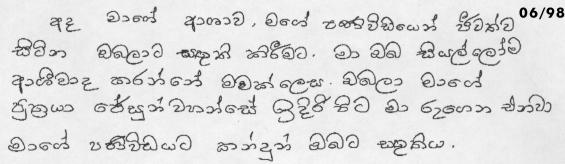 06/98
අද මාගේ ආශාව, මගේ පණිවිඩයෙන් ජීවත්ව
සිටින ඔබලාට සතුති කිරීමට. මා ඔබ සියල්ලෝම
ආශීවාද කරන්නේ මවක්ලෙස. ඔබලා මාගේ
පුත්‍රයා ජේසුන්වහන්සේ ඉදිරිපිට මා රැගෙන එනවා
මාගේ පණිවිඩයට කන්දුන් ඔබට සතුතිය.